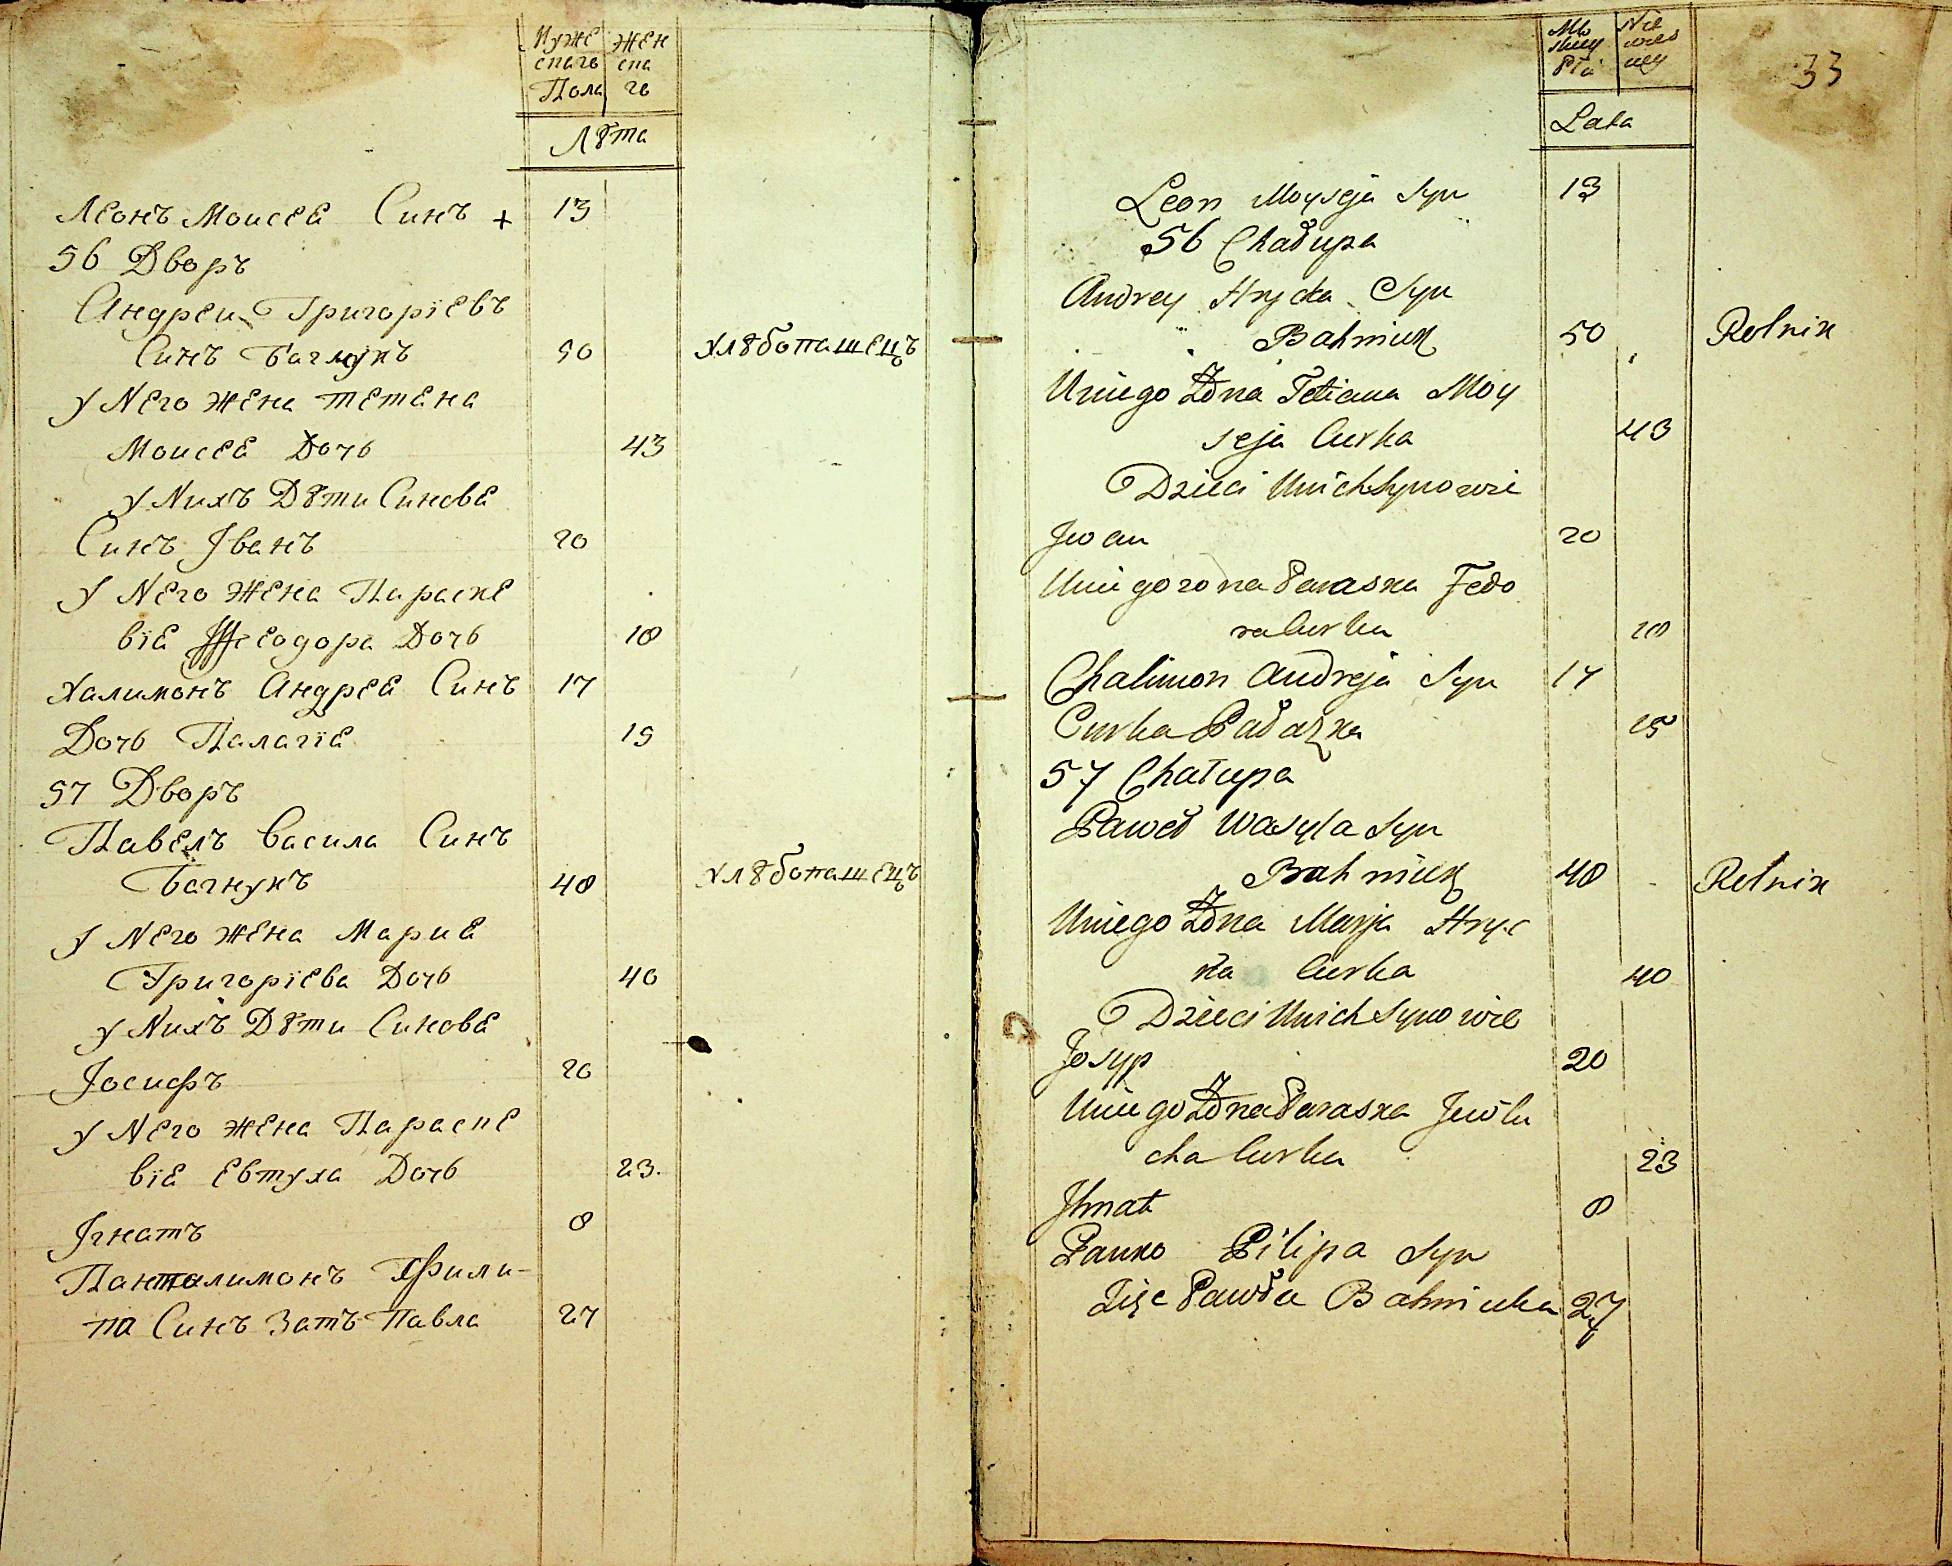 Муже Жен
скаго ска
Пола го
Лѣта
Леонъ Моисеа Синъ + 13
56 Дворъ
Андреи Григоріевъ
Синъ Багнукъ 50 Хлѣбопашецъ
у Него жена Тетѣна
Моисеа Дочь 43
у Нихъ Дѣти Синове
Синъ Іванъ 20
у Него жена Параске
віа Феодора Дочь 18
Халимонъ Андреа Синъ 17
Дочь Палагіа 15
57 Дворъ
Павелъ Васила Синъ
Багнукъ 48 Хлѣбопашецъ
у Него жена Мариа
Григоріева Дочь 40
у Нихъ Дѣти Синове
Іосифъ 20
у Него жена Параске
віа Евтуха Дочь 23.
Ігнатъ 8
Панталимонъ Фили-
па Синъ Зать Павла 27
33
Lata
Leon Moyseja Syn 13
56 Chałupa
Andrey Hrycka Syn
Bahniuk 50 Rolnik
Uniego Żona Tetiana Moy
seja Curka 43
Dzieci Unich Synowie
Jwan 20
Uniego zona Paraska Fedo
ra Curka 18
Chalimon Andreja Syn 17
Curka Pałazka 15
57 Chałupa
Paweł Wasyla Syn
Bahniuk 48 Rolnik
Uniego Żona Marja Hryc
ka Curka 40
Dzieci Unich Synowie
Josyp 20
Uniego Żona Paraska Jewtu
cha Curka 23
Jhnat 8
Panko Pilipa Syn
Zięc Pawła Bahniuka 27